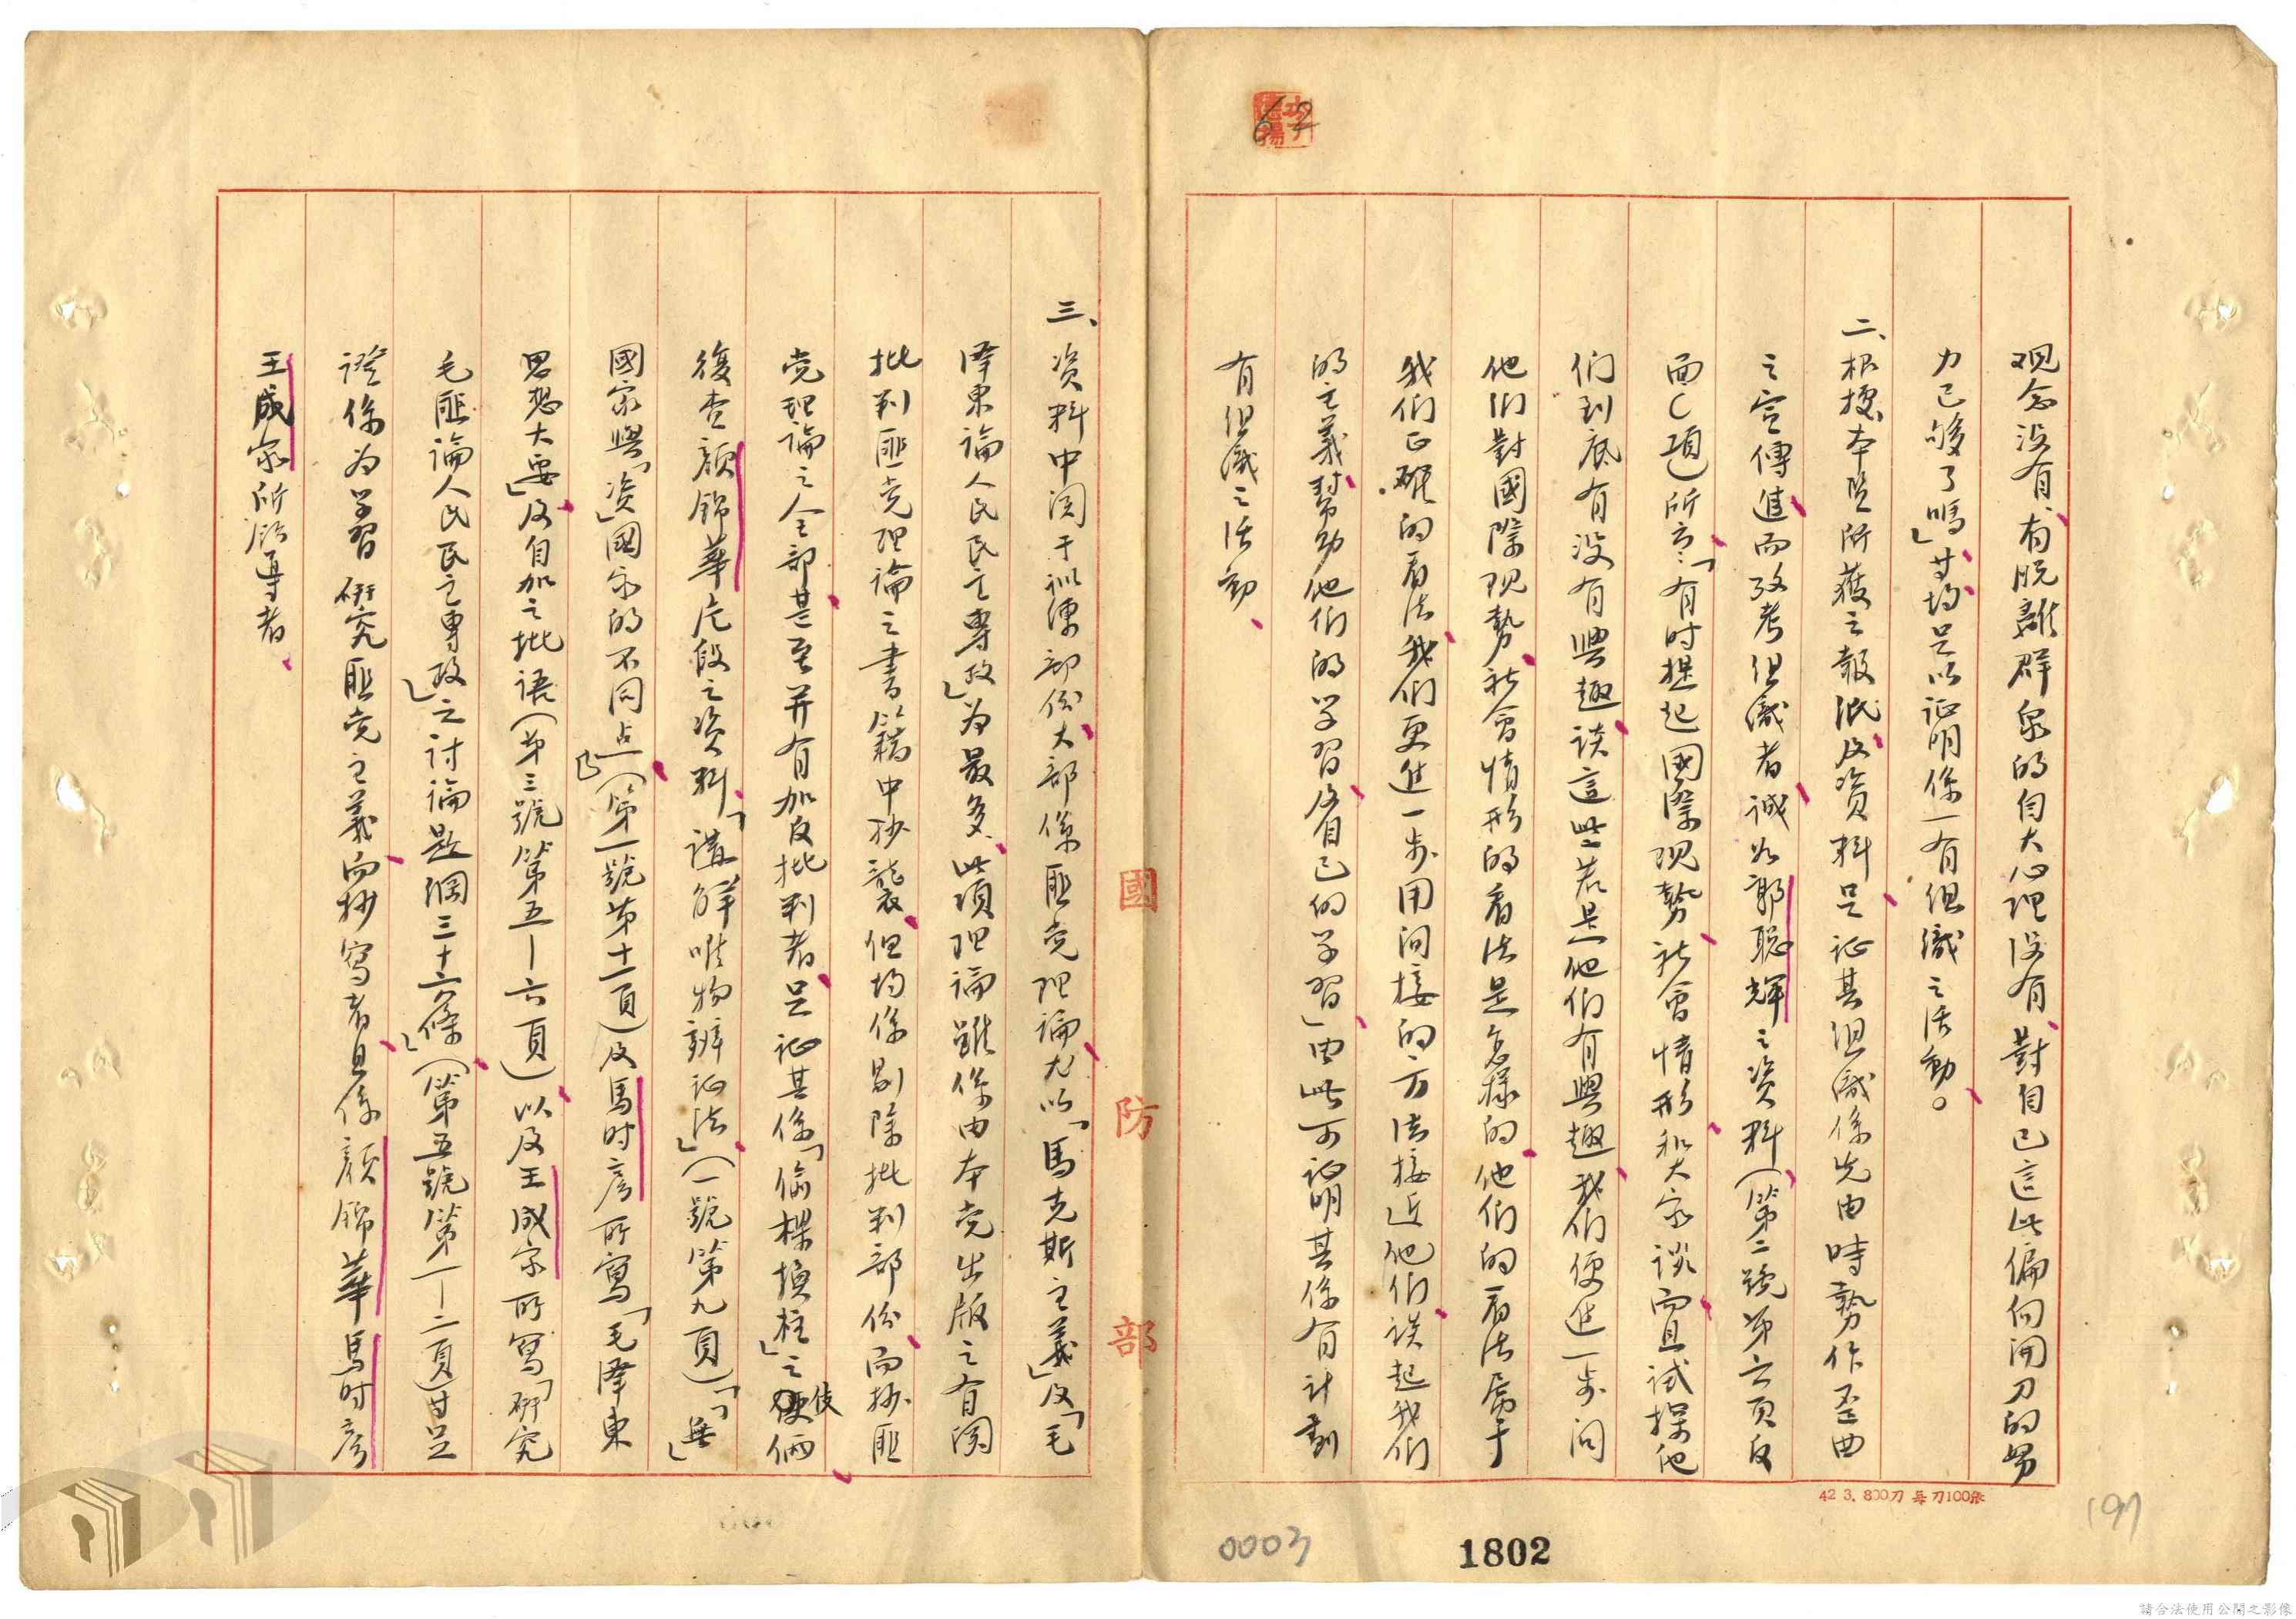 观念没有、有脱離群众的自大心理没有、對自己這些偏向開刀的努
力已够了嗎」、甘均足以証明係一有組織之活動。
二、根據本室所獲之報紙及資料、足証其組織係先由時勢作歪曲
之宣傳、進而政考組織者、誠如郭聪輝之資料（第二號第六頁反
面C項）所言：「有时提起國際現勢、社會情形、和大家談、而且試探他
们到底有没有興趣談這些、若是他们有興趣、我们便進一步问
他们對國際現勢、社會情形的看法是怎樣的、他们的看法属于
我们正確的看法、我们更進一步用间接的方法接近他们、談起我们
的主義、幫助他们的学習、督自己的学習」、由此可証明其係有计劃
有組織之活動、
三、资料中関于訓練部份、大部係匪党理論、尤以「馬克斯主義」及「毛
澤東論人民民主專政」為最多、此項理論雖係由本党出版之有関
批判匪党理論之書籍中抄襲、但均係剔除批判部份、而抄匪
党理論之全部、甚至并有加反批判者、足証其係「偷樑換柱」之伎俩
復查顏錦華片段之资料、「講解唯物辨証法」（一號第九頁）「「無」
國家與「资」國家的不同点」（第一號第十一頁）及馬时彦所寫「毛澤東
思想大要」、及自加之批语（第三號第五—六頁）、以及王成宗所寫「研究
毛匪論人民民主專政」之讨論题綱三十六條」（第五號第一—二頁）、甘足
證係为学習研究匪党主義、而抄寫者、且係顏錦華馬时彦
王成宗所领導者、
國防部
62
42 3. 800刀 每刀100張
0003
1802
197
請合法使用公開之影像